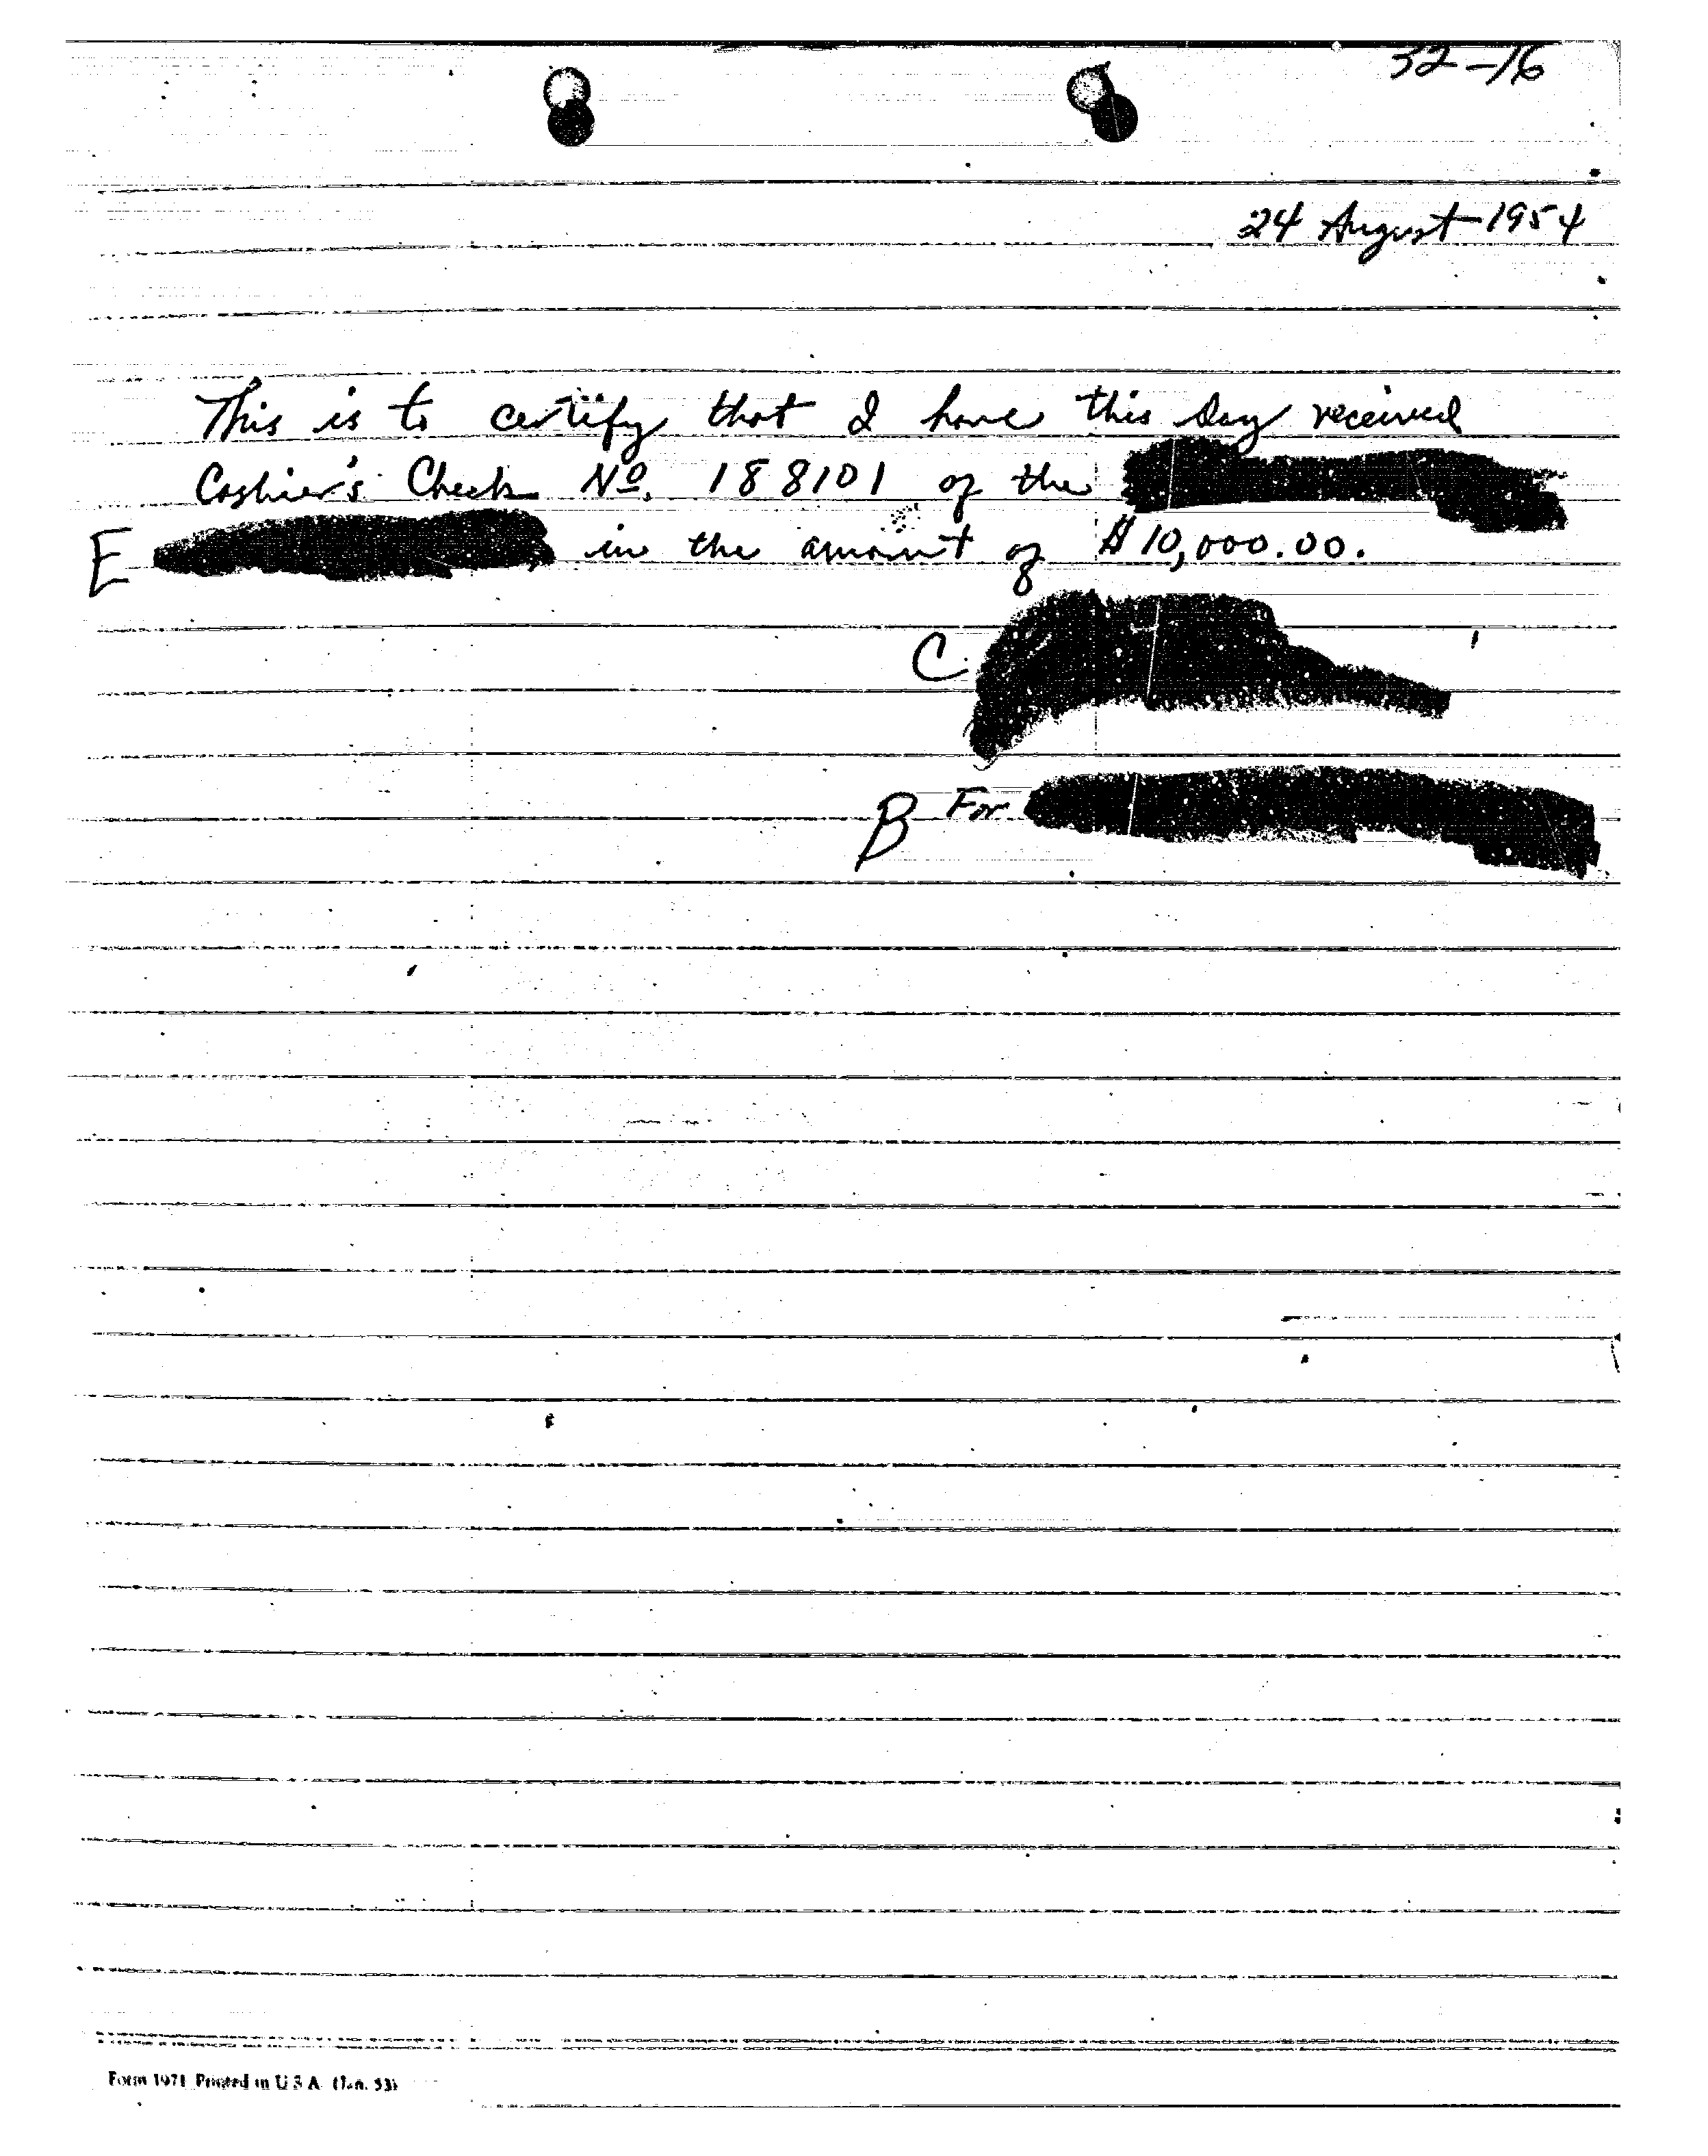 32-16
24 August 1954
This is to certify that I have this day received
Cashier's Check Nº. 188101 of the
E in the amount of $10,000.00.
C
B For
Form 1071 Printed in U S A (Jan. 53)